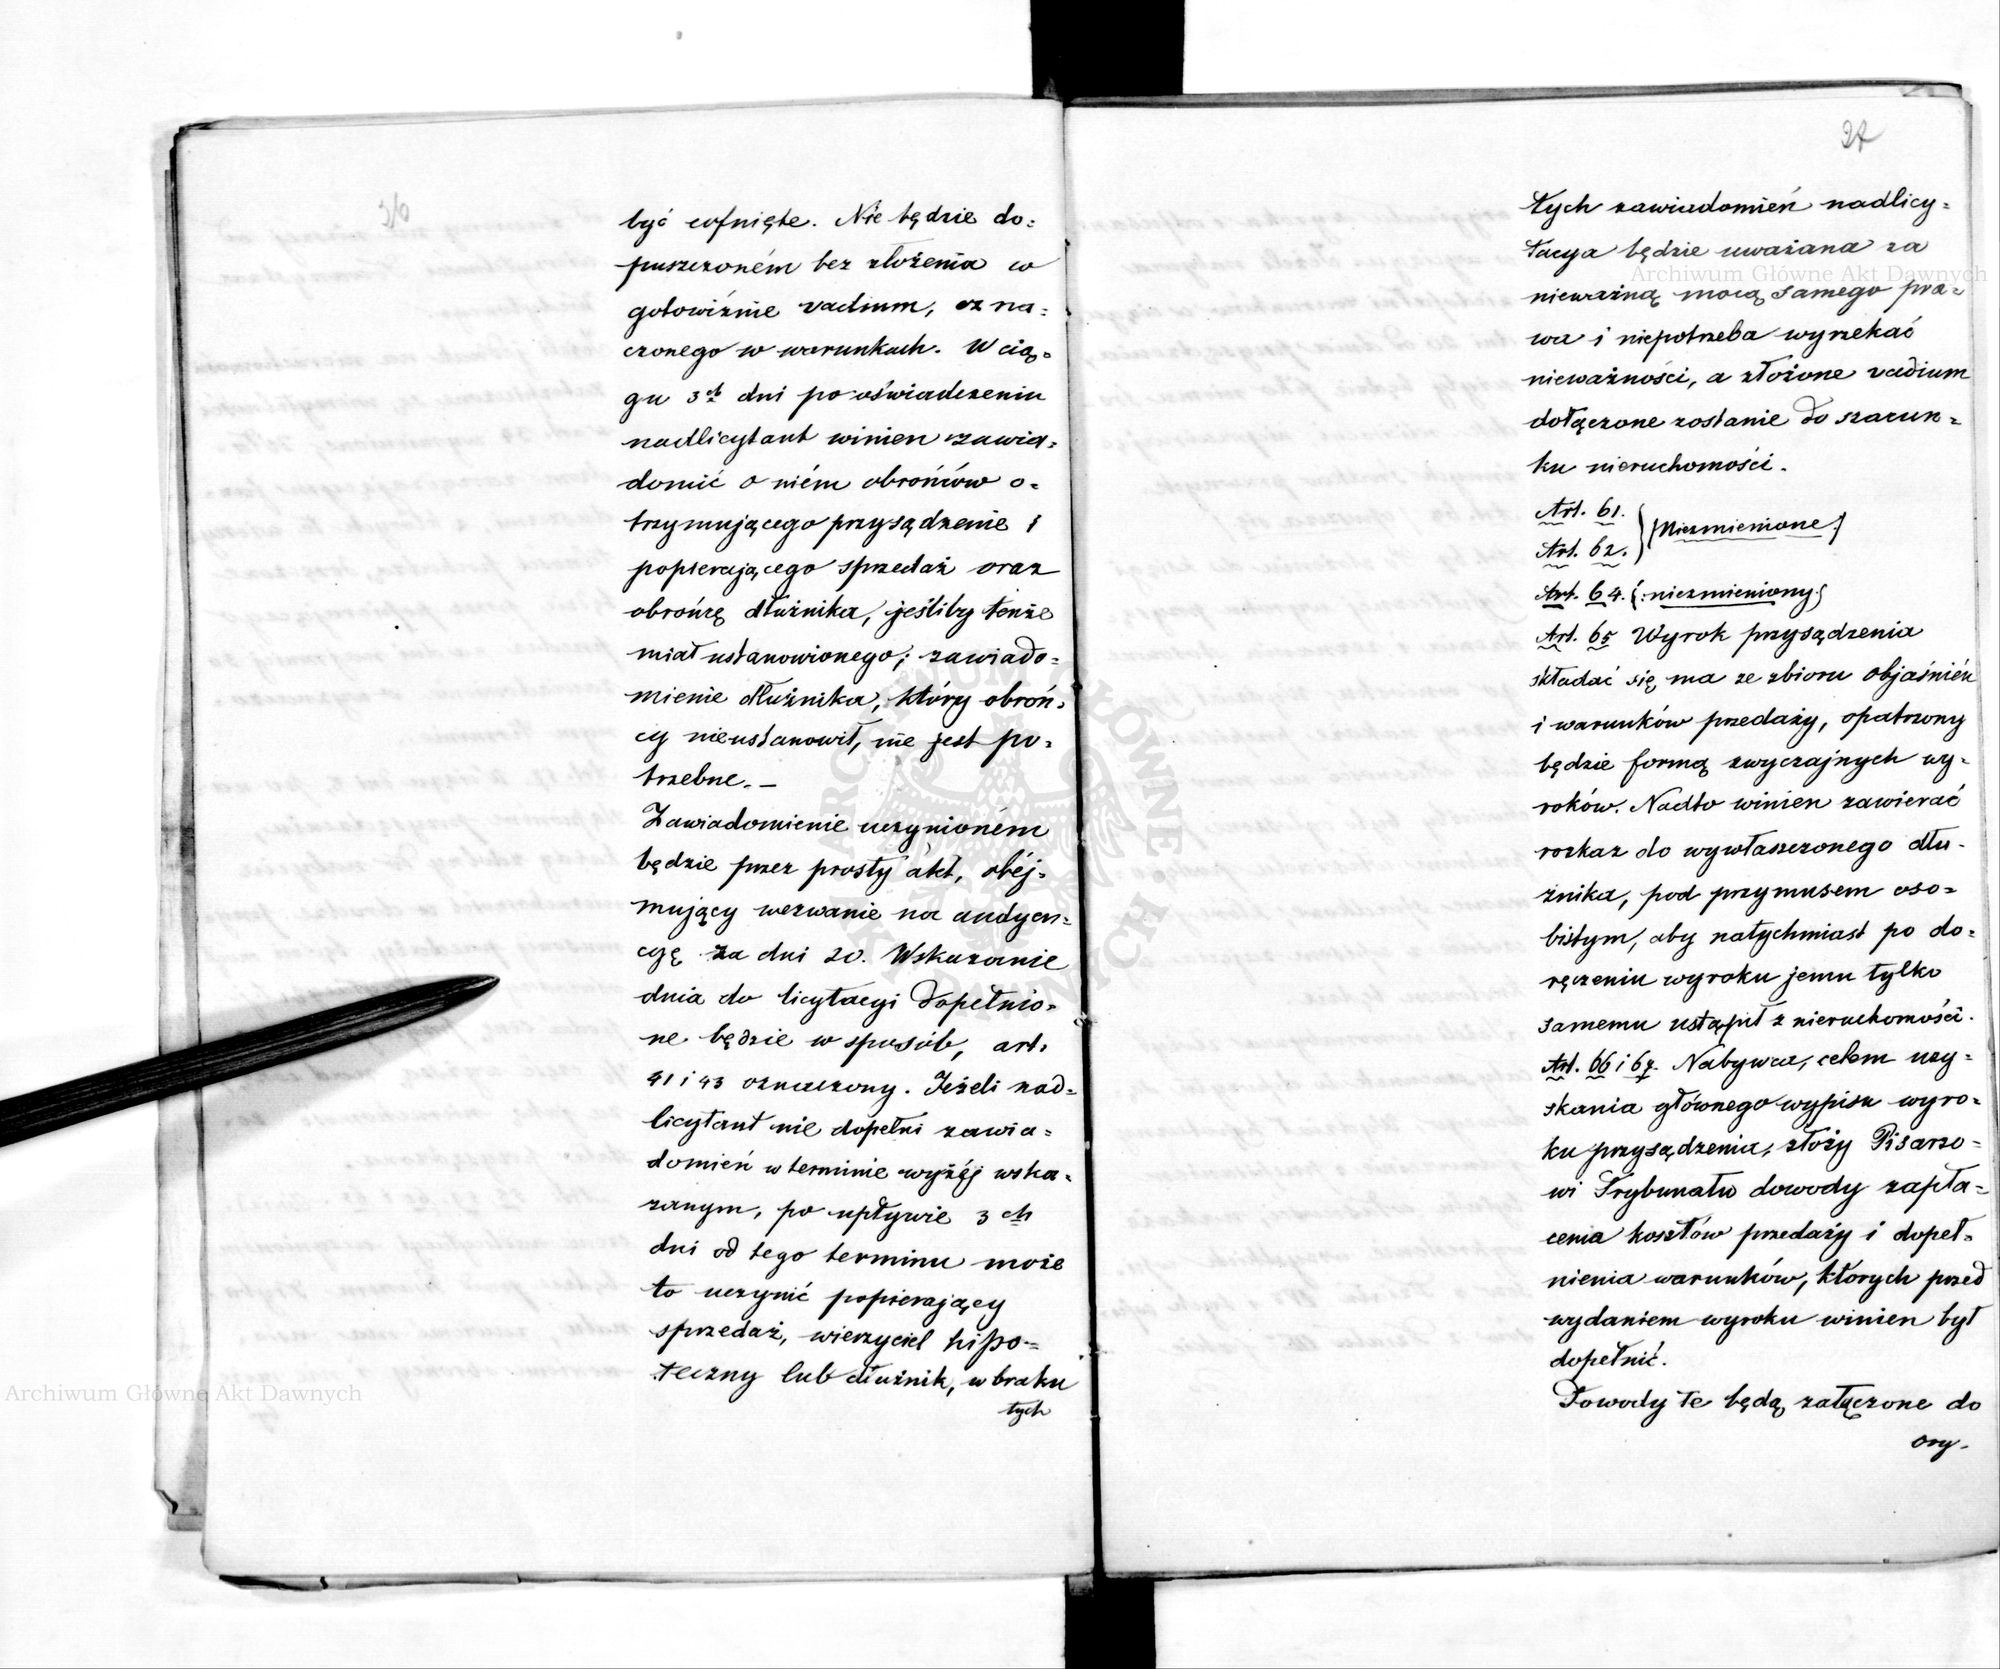 36
być cofnięte. Nie będzie do=
puszczoném bez złożenia w
gotowiźnie vadium, ozna=
czonego w warunkach. W cią=
gu 3ch dni po oświadczeniu
nadlicytant winien zawia=
domić o niém obrońców o=
trzymującego przysądzenie i
popierającego sprzedaż oraz
obrońcę dłużnika, jeśliby tenże
miał ustanowionego; zawiado=
mienie dłużnika, który obroń=
cy nieustanowił, nie jest po=
trzebne. —
Zawiadomienie uczynioném
będzie przez prosty akt, obej=
mujący wezwanie na audyen=
cyę za dni 20. Wskazanie
dnia do licytacyi dopełnio=
ne będzie w sposób, art.
41 i 43 oznaczony. Jeżeli nad=
licytant nie dopełni zawia=
domień w terminie wyżéj wska=
zanym, po upływie 3ch
dni od tego terminu może
to uczynić popierający
sprzedaż, wierzyciel hipo=
teczny lub dłużnik, w braku
tych
37
tych zawiadomień nadlicy=
tacya będzie uważana za
nieważną mocą samego pra=
wa i niepotrzeba wyrzekać
nieważności, a złożone vadium
dołączone zostanie do szacun=
ku nieruchomości.
Art. 61.
Art. 62. } [Niezmienione]
Art. 64. (: niezmieniony :)
Art. 65 Wyrok przysądzenia
składać się ma ze zbioru objaśnień
i warunków przedaży, opatrzony
będzie formą zwyczajnych wy=
roków. Nadto winien zawierać
rozkaz do wywłaszczonego dłu=
żnika, pod przymusem oso=
bistym, aby natychmiast po do=
ręczeniu wyroku jemu tylko
samemu ustąpił z nieruchomości.
Art. 66 i 67. Nabywca, celem uzy=
skania głównego wypisu wyro=
ku przysądzenia, złoży Pisarzo=
wi Trybunału dowody zapła=
cenia kosztów przedaży i dopeł=
nienia warunków, których przed
wydaniem wyroku winien był
dopełnić.
Dowody te będą załączone do
ory.
Archiwum Główne Akt Dawnych
Archiwum Główne Akt Dawnych